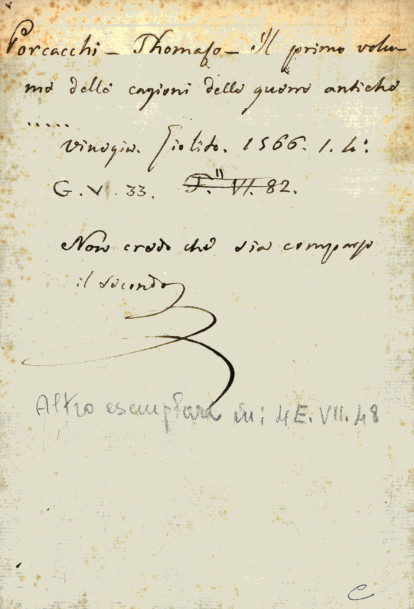 Porcacchi - Thomaso - Il primo volu-
me delle cagioni delle guerre antiche
.....
Vinegia. Giolito. 1566. 1. 4:
G. V. 33. F." VI. 82.
Non credo che sia comparso
il secondo
Altro esemplare in: 4E. VII. 48
C